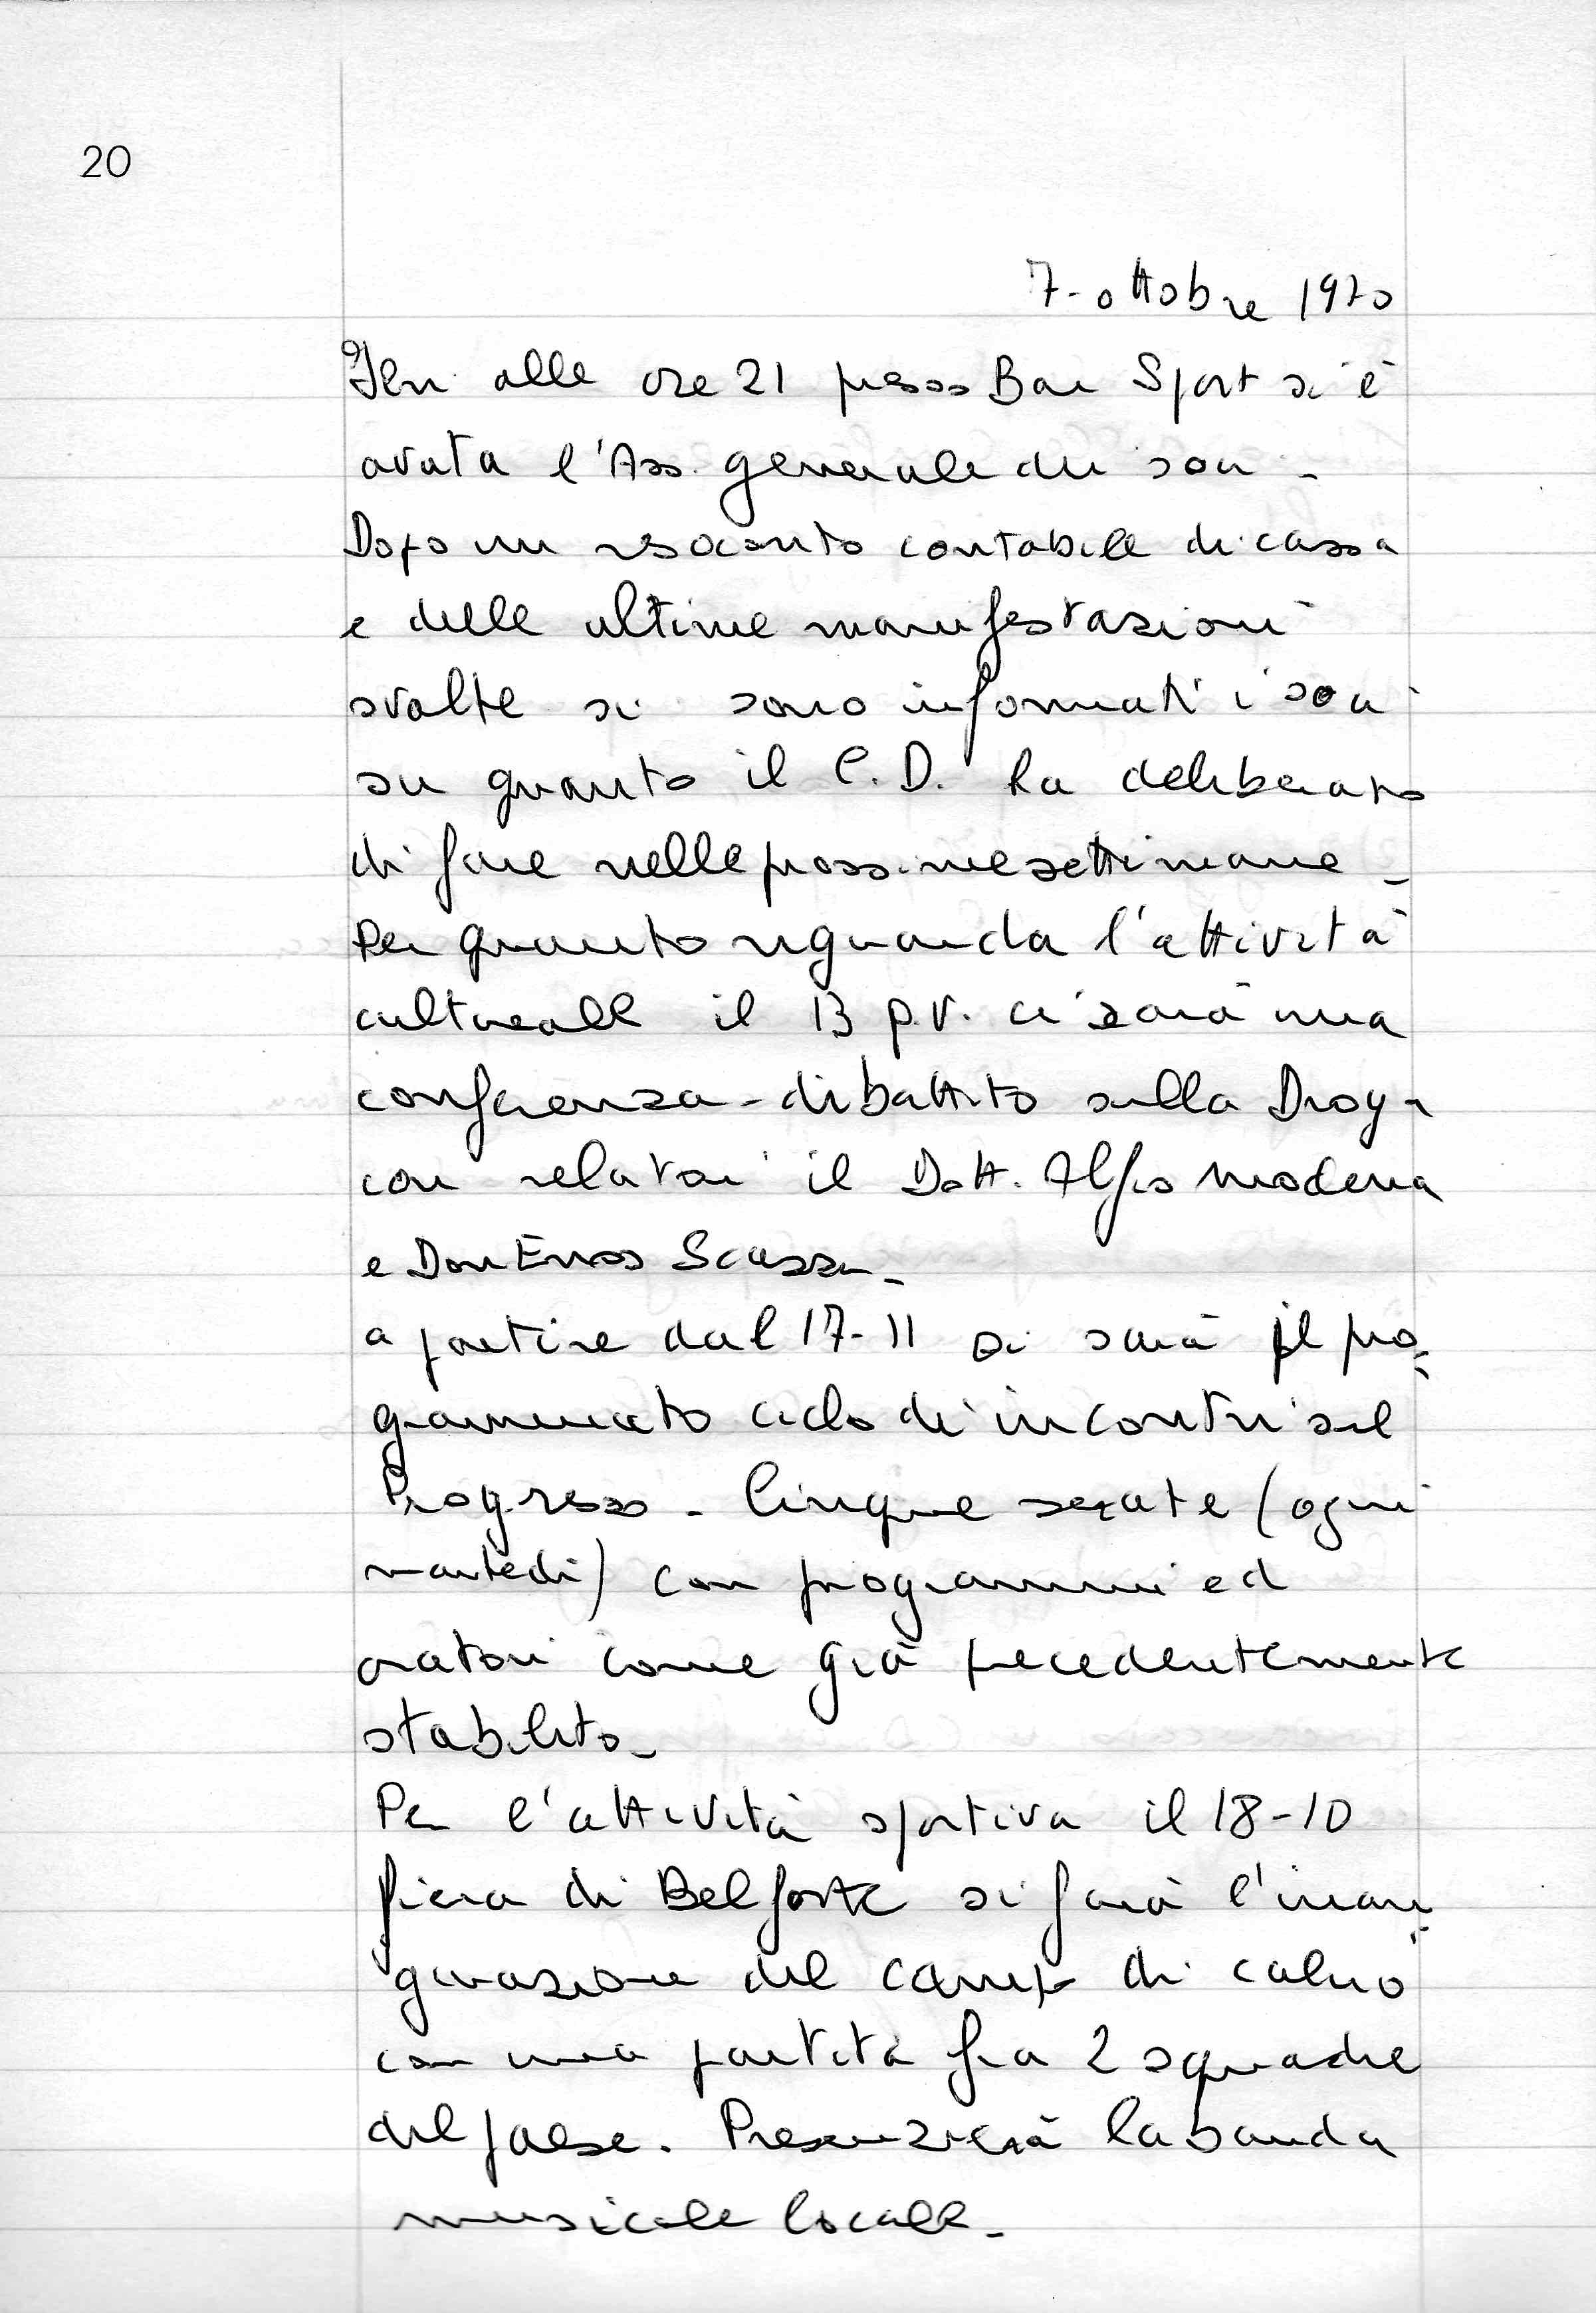 20
7- ottobre 1970
Ieri alle ore 21 presso Bar Sport si è
avuta l'Ass. generale dei soci -
Dopo un resoconto contabile di cassa
e delle ultime manifestazioni
svolte si sono informati i soci
su quanto il C.D. ha deliberato
di fare nelle prossime settimane -
Per quanto riguarda l'attività
culturale il 13 p.v. ci sarà una
conferenza-dibattito sulla Droga
con relatori il Dott. Alfio Modena
e Don Enos Scassa -
a partire dal 17-11 si sarà il pro=
grammato ciclo di incontri sul
Progresso - Cinque serate (ogni
martedì) con programmi ed
oratori come già precedentemente
stabilito -
Per l'attività sportiva il 18-10
fiera di Belforte si farà l'inau=
gurazione del campo di calcio
con una partita fra 2 squadre
del paese. Presenzierà la banda
musicale locale -